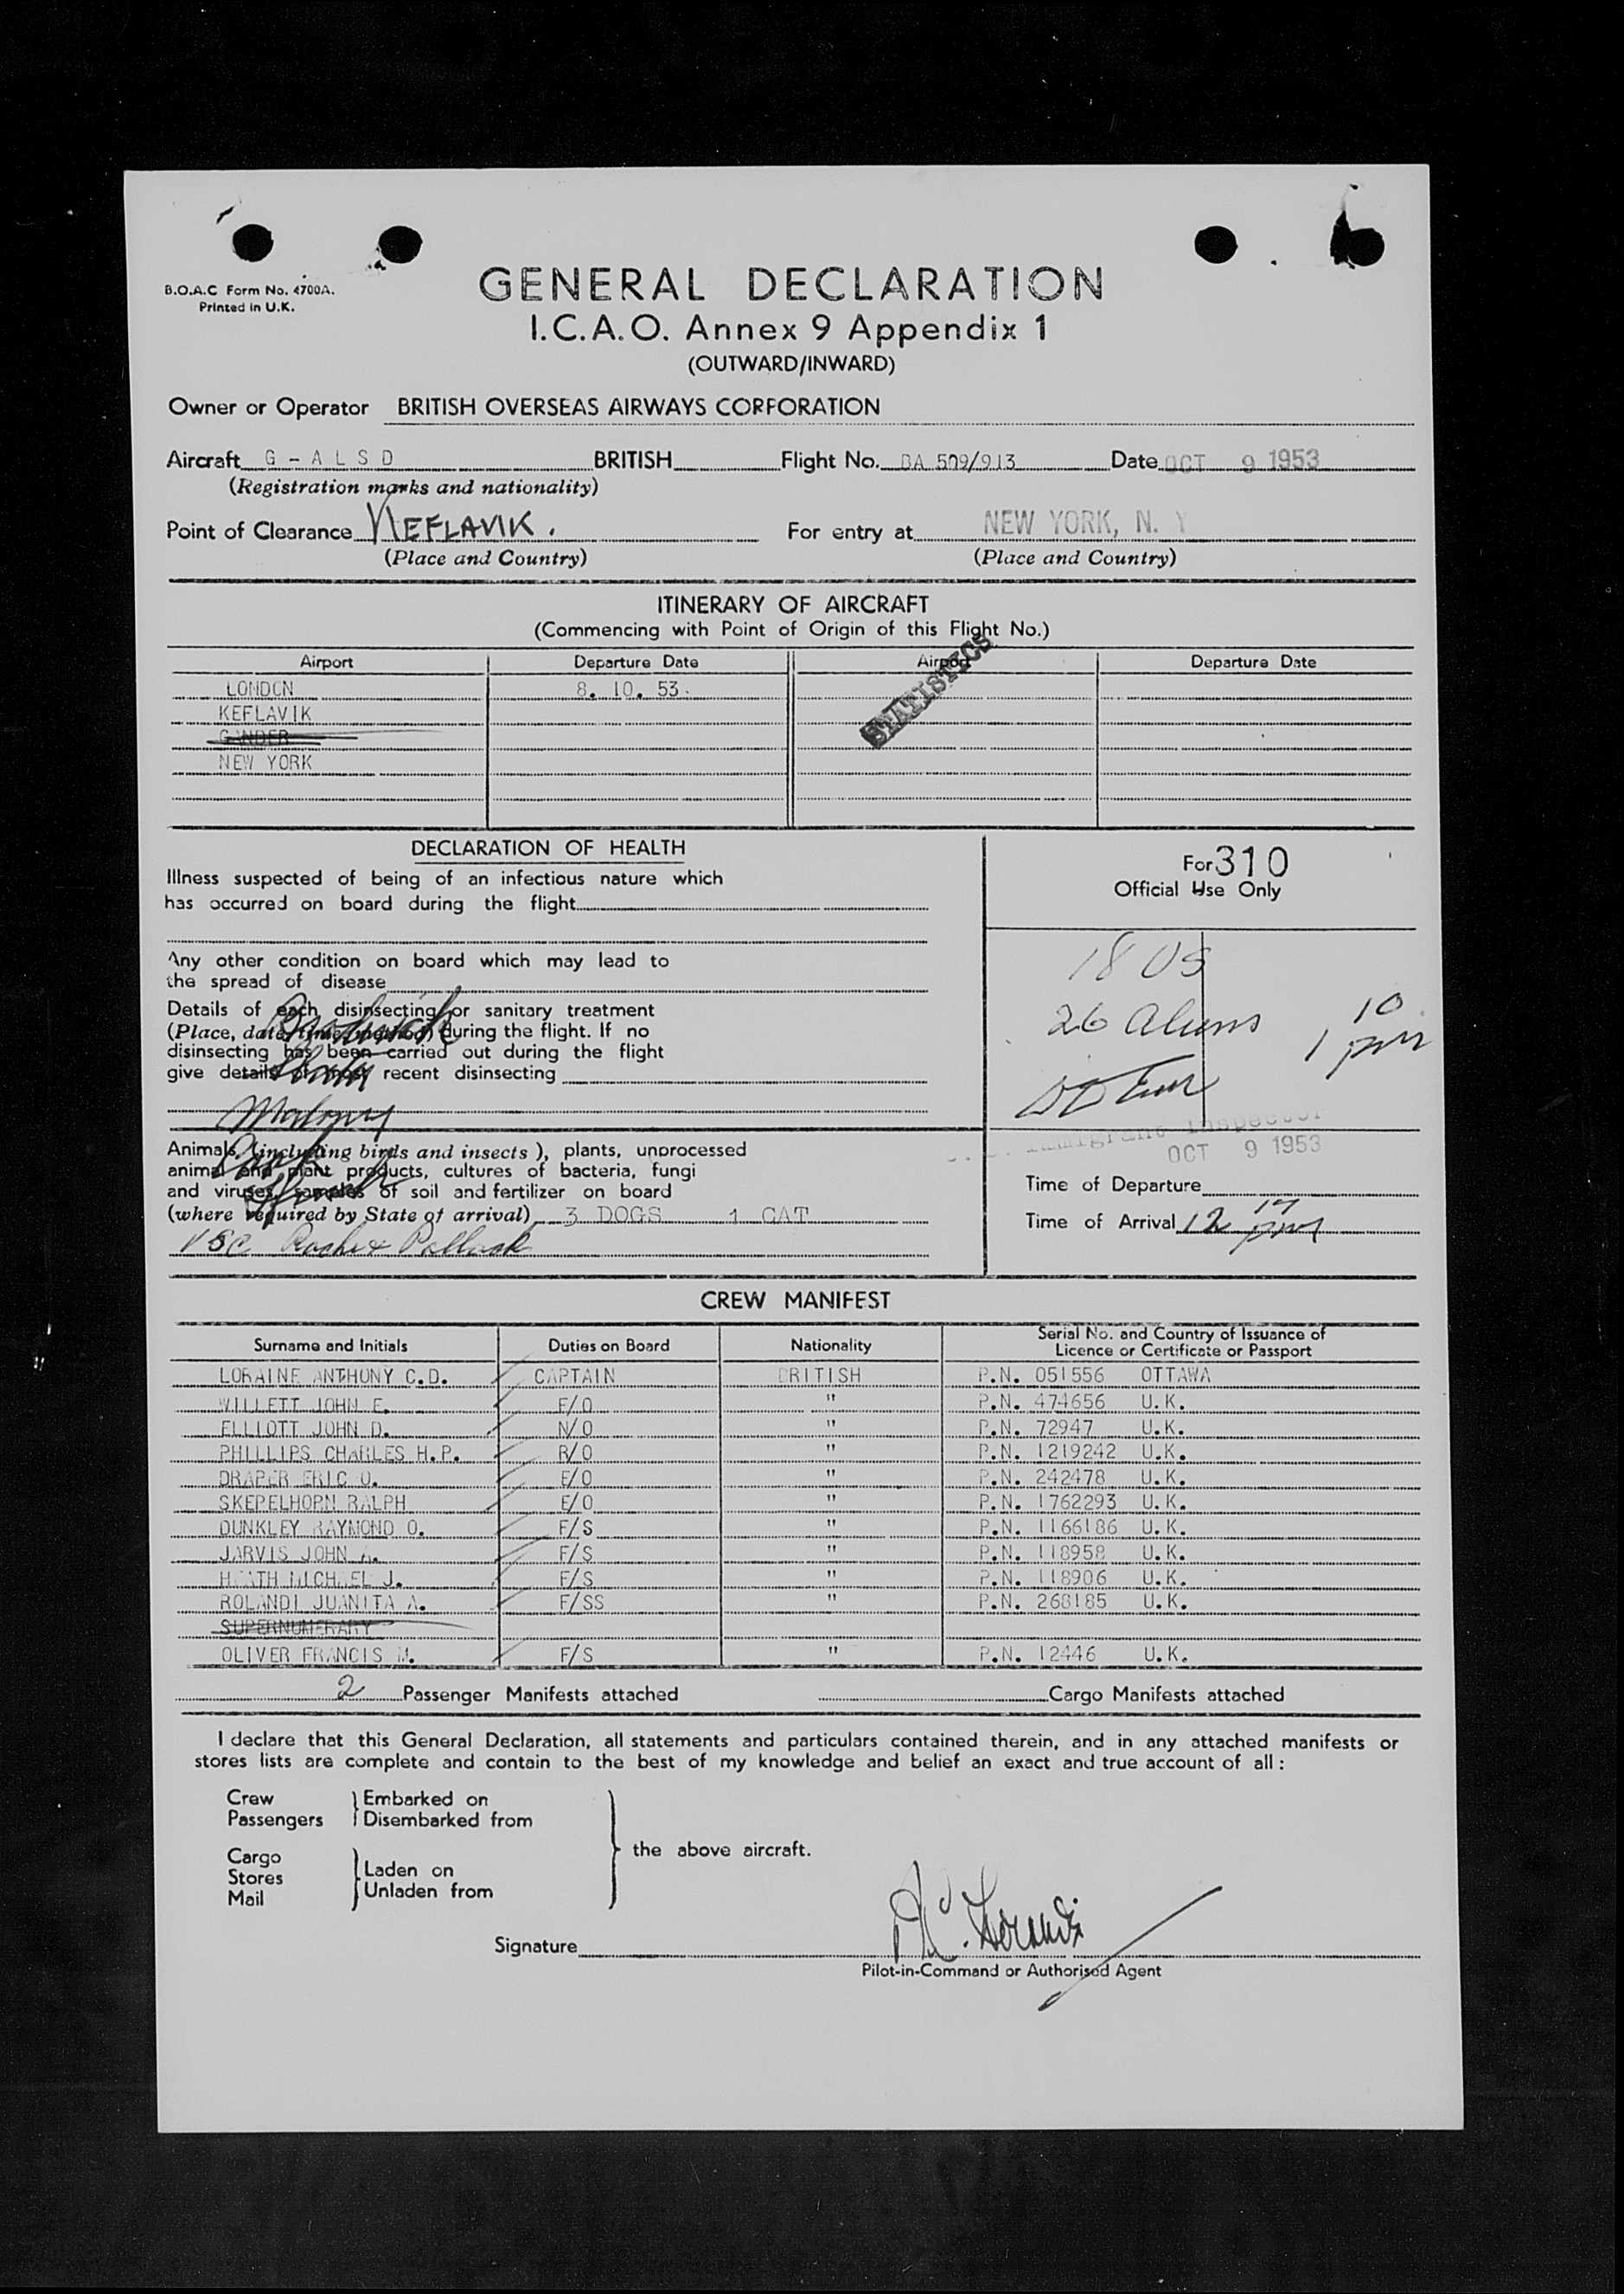 B.O.A.C Form No. 4700A.
Printed in U.K.
GENERAL DECLARATION
I.C.A.O. Annex 9 Appendix 1
(OUTWARD/INWARD)
Owner or Operator BRITISH OVERSEAS AIRWAYS CORPORATION
Aircraft G-ALSD BRITISH Flight No. BA 509/913 Date OCT 9 1953
(Registration marks and nationality)
Point of Clearance KEFLAVIK. For entry at NEW YORK, N. Y
(Place and Country) (Place and Country)
ITINERARY OF AIRCRAFT
(Commencing with Point of Origin of this Flight No.)
Airport Departure Date Airport Departure Date
STATISTICS
LONDON 8. 10. 53.
KEFLAVIK
GANDER
NEW YORK
DECLARATION OF HEALTH
Illness suspected of being of an infectious nature which
has occurred on board during the flight
Any other condition on board which may lead to
the spread of disease
Details of each disinsecting or sanitary treatment
(Place, date, time, method) during the flight. If no
disinsecting has been carried out during the flight
give details of most recent disinsecting
Malony
Animals (including birds and insects), plants, unprocessed
animal and plant products, cultures of bacteria, fungi
and viruses, samples of soil and fertilizer on board
(where required by State of arrival) 3 DOGS 1 CAT
Pollack
For 310
Official Use Only
18 US
26 Aliens
1 10 pm
Immigrant Inspector
OCT 9 1953
Time of Departure
Time of Arrival 12 17 pm
CREW MANIFEST
Surname and Initials Duties on Board Nationality Serial No. and Country of Issuance of
Licence or Certificate or Passport
LORAINE ANTHONY C.D. CAPTAIN BRITISH P.N. 051556 OTTAWA
WILLETT JOHN E. F/O " P.N. 474656 U.K.
ELLIOTT JOHN D. N/O " P.N. 72947 U.K.
PHILLIPS CHARLES H.P. R/O " P.N. 1219242 U.K.
DRAPER ERIC O. E/O " P.N. 242478 U.K.
SKEPELHORN RALPH E/O " P.N. 1762293 U.K.
DUNKLEY RAYMOND O. F/S " P.N. 1166186 U.K.
JARVIS JOHN A. F/S " P.N. 118958 U.K.
HEATH MICHAEL J. F/S " P.N. 118906 U.K.
ROLANDI JUANITA A. F/SS " P.N. 268185 U.K.
SUPERNUMERARY
OLIVER FRANCIS M. F/S " P.N. 12446 U.K.
2 Passenger Manifests attached Cargo Manifests attached
I declare that this General Declaration, all statements and particulars contained therein, and in any attached manifests or
stores lists are complete and contain to the best of my knowledge and belief an exact and true account of all :
Crew Embarked on
Passengers Disembarked from
the above aircraft.
Cargo
Stores Laden on
Mail Unladen from
Signature
Pilot-in-Command or Authorised Agent